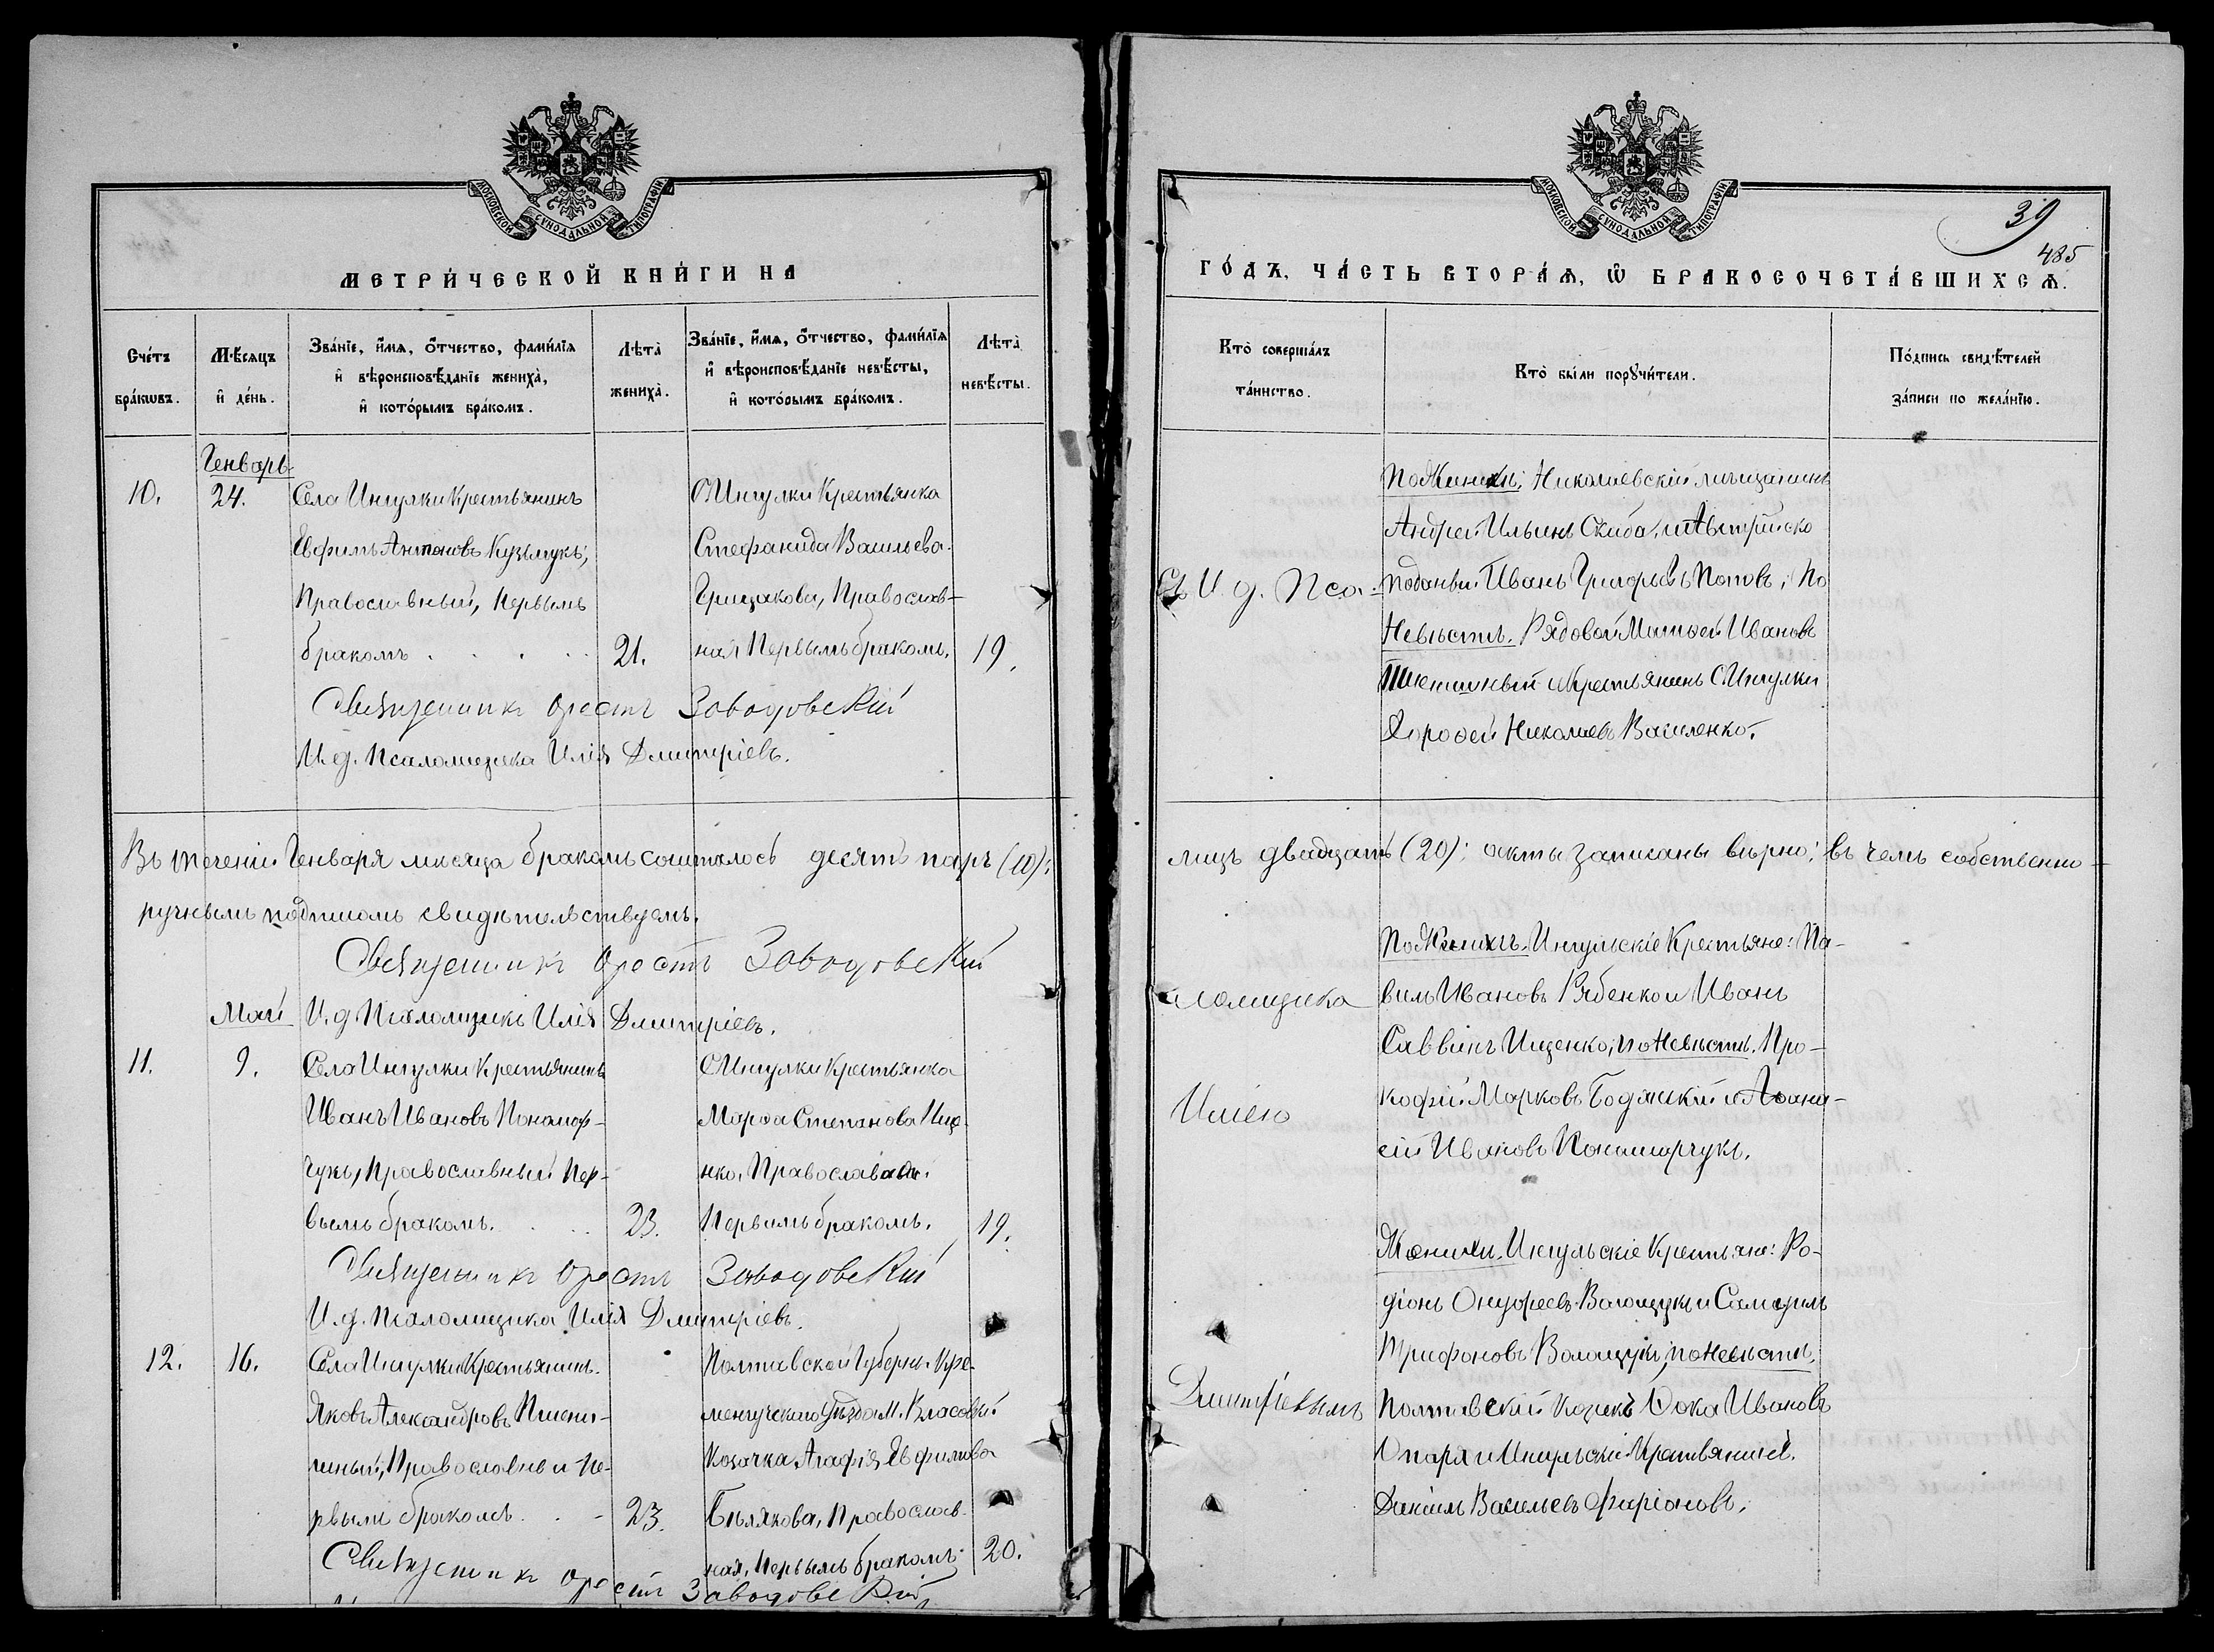 МОСКОВСКОЙ СУНОДАЛЬНОЙ ТИПОГРАФІИ
МЕТРИ́ЧЕСКОЙ КНИ́ГИ НА
Счéтъ брáкѡвъ.
Мѣ́сяцъ и҆ дéнь.
Звáнїе, и҆́мѧ, ѻ҆́тчество, фамѝлїѧ и҆ вѣроисповѣ́данїе женихà, и҆ котóрымъ брáкомъ.
Лѣтà женихà.
Звáнїе, и҆́мѧ, ѻ҆́тчество, фамѝлїѧ и҆ вѣроисповѣ́данїе невѣ́сты, и҆ котóрымъ брáкомъ.
Лѣтà невѣ́сты.
Генварь
10.
24.
Села Ингулки Крестьянинъ
Евфимъ Антоновъ Кузьмукъ,
Православный, Первымъ
бракомъ . . . .
21.
С Ингулки Крестьянка
Стефанида Васильева
Грицакова, Православ-
ная Первымъ бракомъ.
19.
Священникъ Орестъ Заводовскій
И. д. Псаломщика Илія Дмитріевъ.
Въ теченіи Генваря мѣсяца бракомъ сочталось десять паръ (10);
ручнымъ подписомъ свидѣтельствуемъ.
Священникъ Орестъ Заводовскій
И. д. Псаломщикъ Илія Дмитріевъ.
Май
11.
9.
Села Ингулки Крестьянинъ
Иванъ Ивановъ Понамор-
чукъ, Православный Пер-
вымъ бракомъ. . .
23.
С Ингулки Крестьянка
Марѳа Степанова Ище-
нко, Православная.
Первымъ бракомъ.
19.
Священникъ Орестъ Заводовскій
И. д. Псаломщика Илія Дмитріевъ.
12.
16.
Села Ингулки Крестьянинъ.
Яковъ Александровъ Пшени-
чный, Православный Пе-
рвымъ бракомъ. . -
23.
Полтавской Губерніи Кре-
менчугскаго Уѣзда М. Власовки
Козачка Агафія Евфимова
Бѣлякова, Православ-
ная, Первымъ бракомъ.
20.
Священникъ Орестъ Заводовскій
МОСКОВСКОЙ СУНОДАЛЬНОЙ ТИПОГРАФІИ
39
485
ГÓДЪ, ЧÁСТЬ ВТОРÁѦ, Ѡ҆ БРАКОСОЧЕТÁВШИХСѦ.
Ктò совершáлъ тáинство.
Ктò бы́ли порꙋчи́тели.
Пóдпись свидѣ́телей зáписи по желáнїю.
По Женихѣ: Николаевскій мѣщанинъ
Андрей Ильинъ Скиба, и Австрійско
подданый Иванъ Григорьевъ Поповъ; По
Невѣстѣ. Рядовой Матѳей Ивановъ
и Крестьянинъ С Ингулки
Дороѳей Николаевъ Василенко.
Съ И. д. Пса-
лицъ двадцать (20); акты записаны вѣрно; въ чемъ собственно-
По Женихѣ. Ингульскіе Крестьяне: Па-
велъ Ивановъ Рябенко и Иванъ
Саввинъ Ищенко; по Невѣстѣ. Про-
кофій Марковъ Бодянскій и Аѳана-
сій Ивановъ Понамарчукъ.
ломщика
Иліею
Женихѣ. Ингульскіе Крестьяне: Ро-
діонъ Онуфріевъ Волощукъ и Самуилъ
Трифоновъ Волощукъ; по Невѣстѣ.
Полтавскій козакъ Ѳока Ивановъ
Опаря и Ингульскій Крестьянинъ.
Даніилъ Васильевъ Фаріоновъ.
Дмитріевымъ